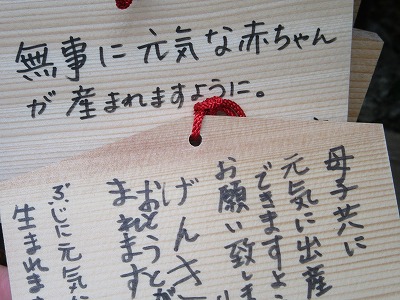 無事に元気な赤ちゃん
が産まれますように。
母子共に
元気に出産
できますよ
お願い致しま
げんき
おとうとが
まれます
ぶじに元気
生まれま